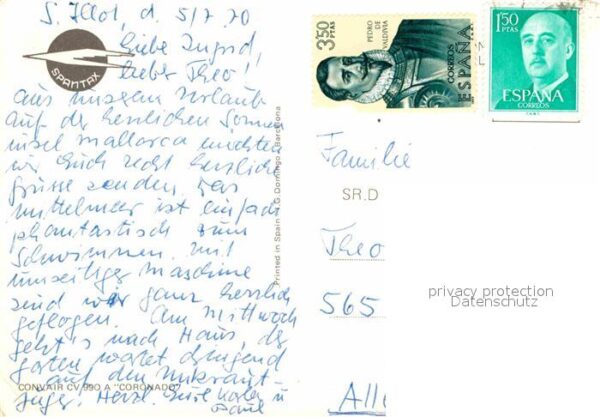 S. Illot, d. 5/7 70
Liebe Ingrid,
lieber Theo!
SPANTAX
aus unserem Urlaub
auf der herrlichen Sonnen
insel Mallorca möchten
wir Euch recht herzlich
grüsse senden, Das
Mittelmeer ist einfach
phantastisch zum
Schwimmen. Mit
umseitiger Maschine
sind wir ganz herrlich
geflogen. Am Mittwoch
geht's nach Haus, der
garten wartet dringend
auf den Unkraut-
CONVAIR CV-990 A "CORONADO"
jäger. Herzl. Eure u
Paul
Printed in Spain - G. Domingo - Barcelona
3'50
PTAS
PEDRO DE
VALDIVIA
CORREOS
ESPAÑA
1'50
PTAS
ESPAÑA
CORREOS
Familie
SR.D
Theo
565
privacy protection
Datenschutz